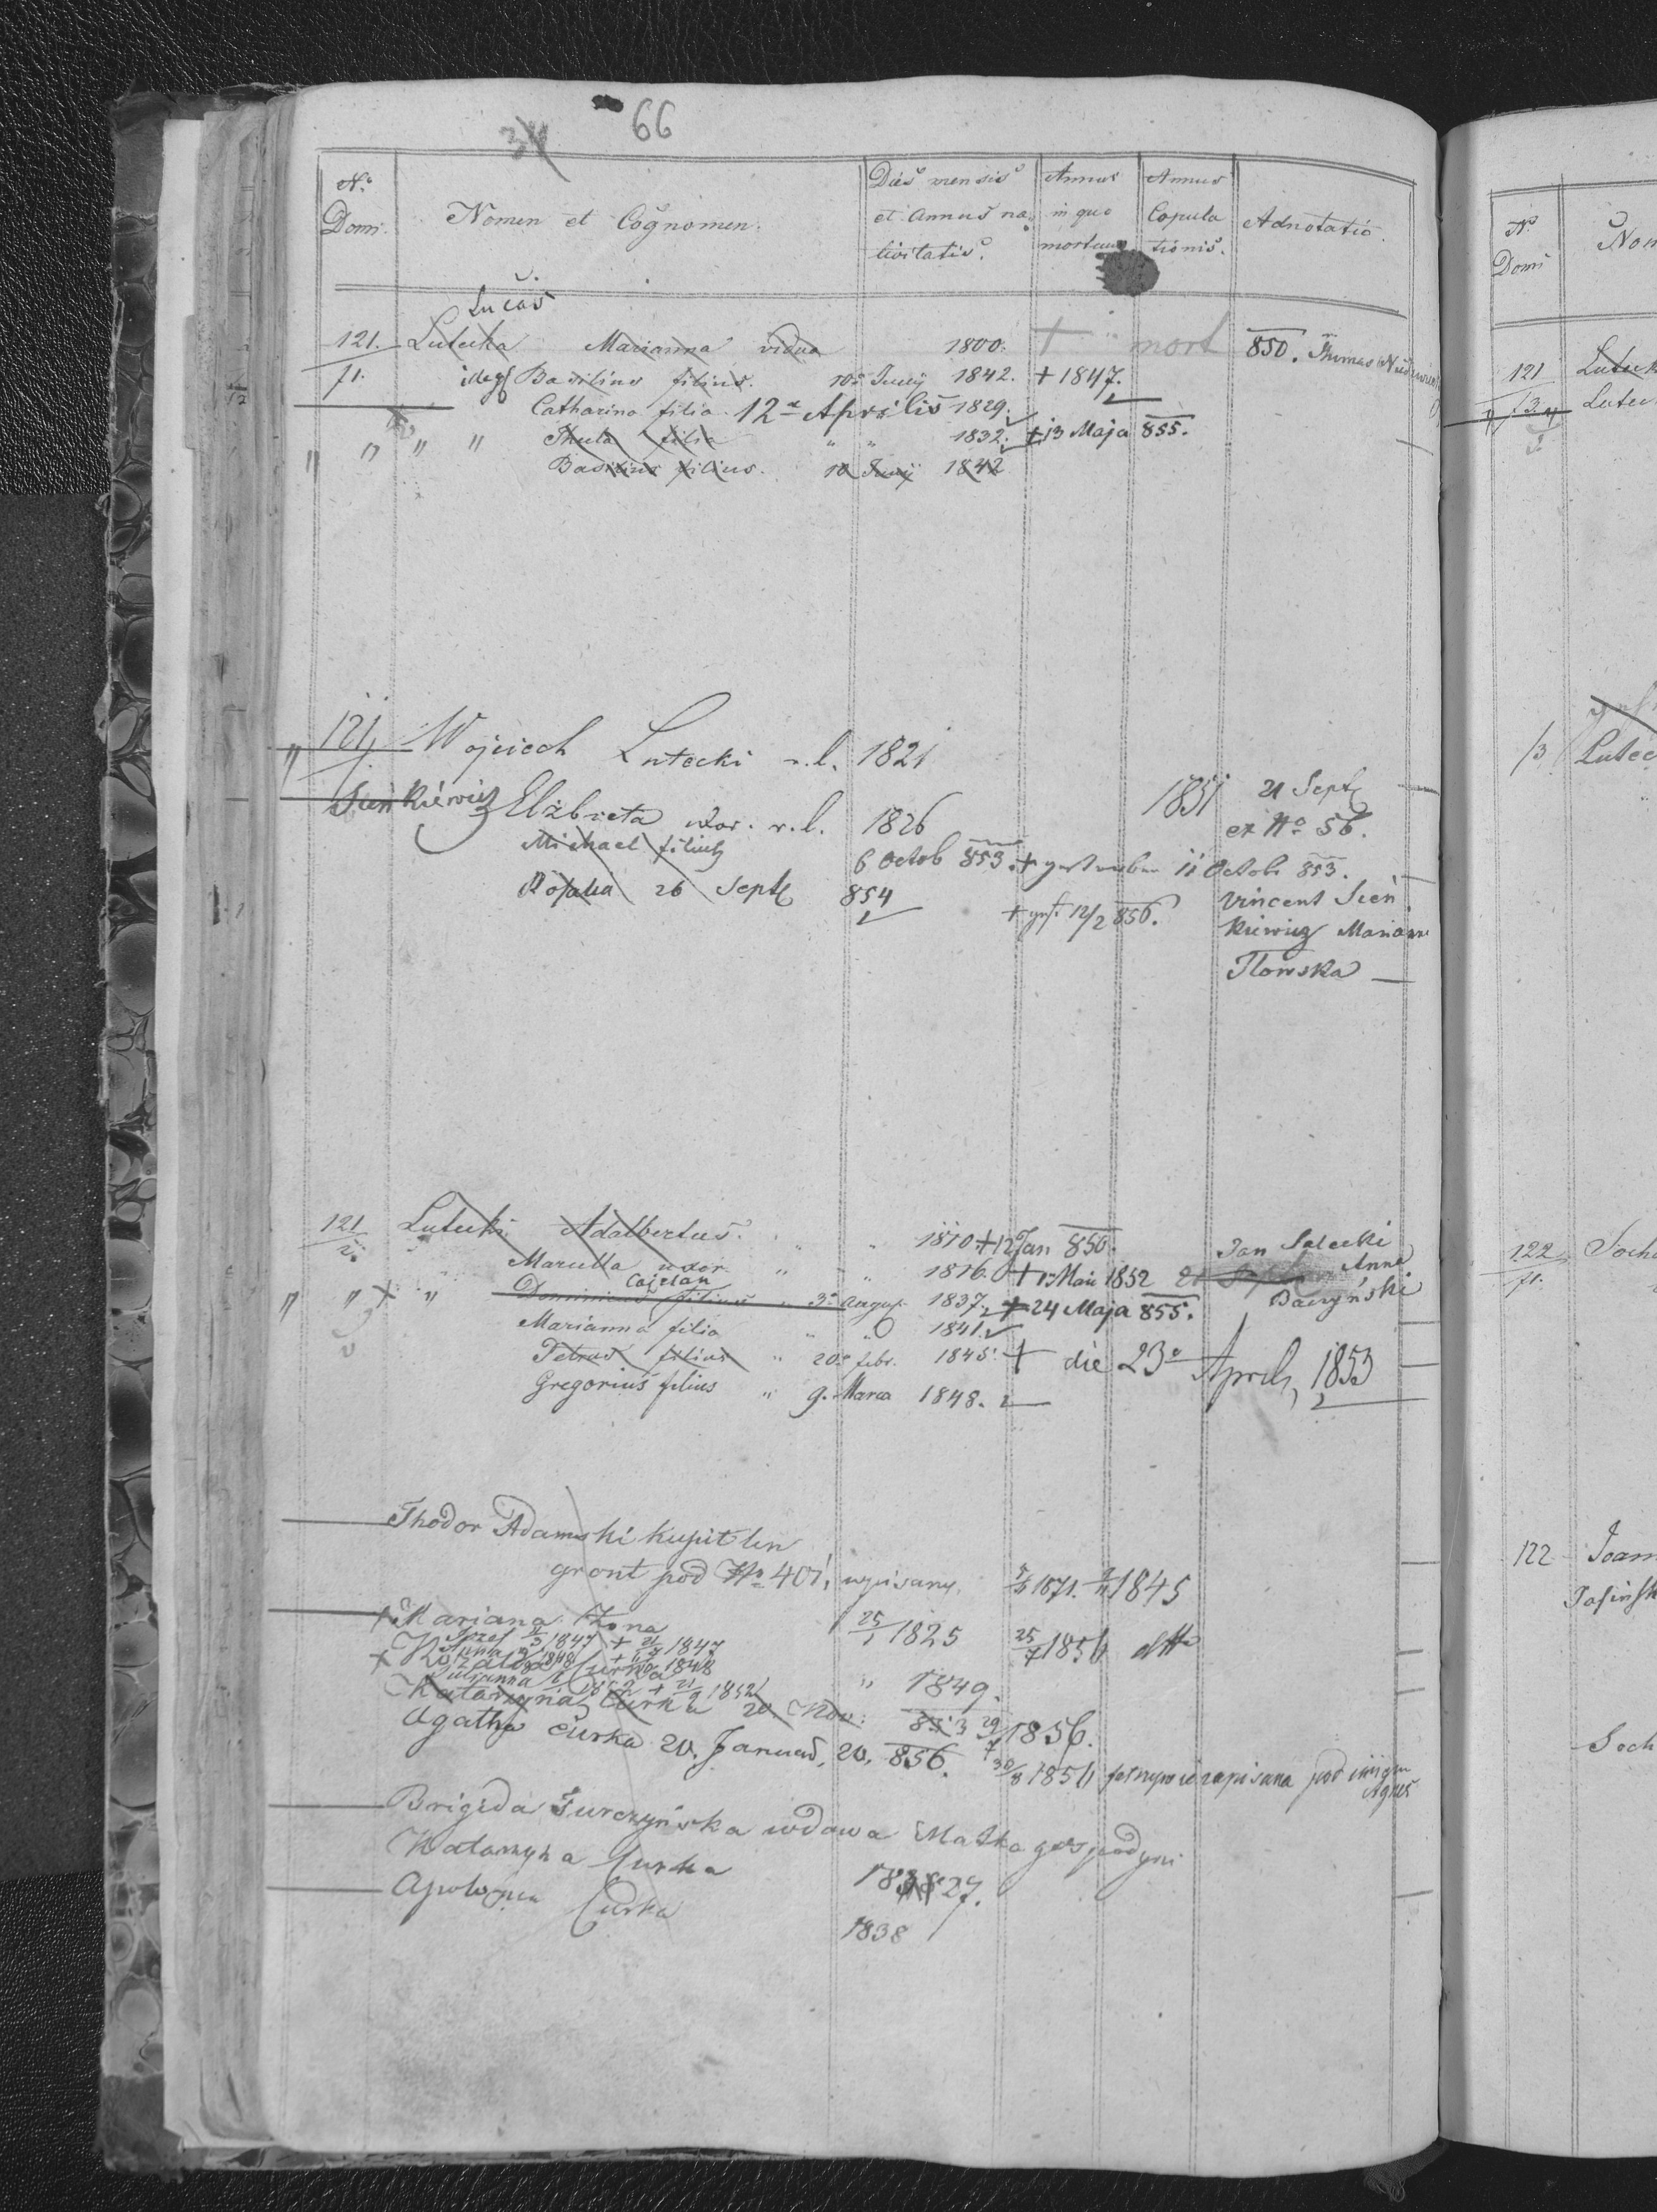 34 66
No Domi. Nomen et Cognomen. Dies mensis et annus nativitatis. Annus in quo mortuus Annus Copulationis. Adnotatio.
Lucas
121. Lutecka Marianna vidua 1800. + mort 850. Thomas
/1. illeg Basilius filius. 10a Junij 1842. + 1847.
Catharina filia. 12a Aprilis 1829.
" " " " Thecla filia " " 1832. + 13 Maja 855.
Basilius filius. 10 Junij 1842
" 121 Wojciech Lutecki r.l. 1821
Sienkiewicz Elżbieta uxor. r.l. 1826 1851 21 Sept
ex No 56.
Michael filius 6 Octob 853. + 11 Octob 853.
Rosalia 26 Sept 854 + 12/2 856. Vincent Sien
kiewicz Mariann
Ilowska
121 Lutecki Adalbertus. " " 1810 + 12 Jan 850. Jan Salecki
/2. Marcella uxor " " 1816. + Maii 1852 Anna
Cajetan
" " + " Dominicus filius " 3a August 1837. + 24 Maja 855. Baczyński
Marianna filia " " 1841.
Petrus filius " 20a febr. 1845. + die 23a Aprils, 1853
Gregorius filius " 9. Marca 1848.
Thodor Adamski kupit ten
gront pod No 401, wpisany, 1871. 1845
+ Mariana Żona 25/1 1825 25/7 1856 dtto
Jozef 3 1847 + 21 1847
Anna 1848 + 1848
+ Rozalia Curka " 1849.
Julianna 1852 + 21/9 1852
Katarzyna Curka 20 Nov: 853 29/7 1856.
Agatha curka 20. Januar, 20, 856. 30/8 1856 zapisana pod
Agnes
Brigida wdowa Matka gospodyni
Katarzyna Curka 1827.
Apolonia Curka 1838
No Domi Nom
121 Luteck
/3 Lutec
/3 Lutec
122 Socha
/1.
122 Joann
Jasinsk
Soch